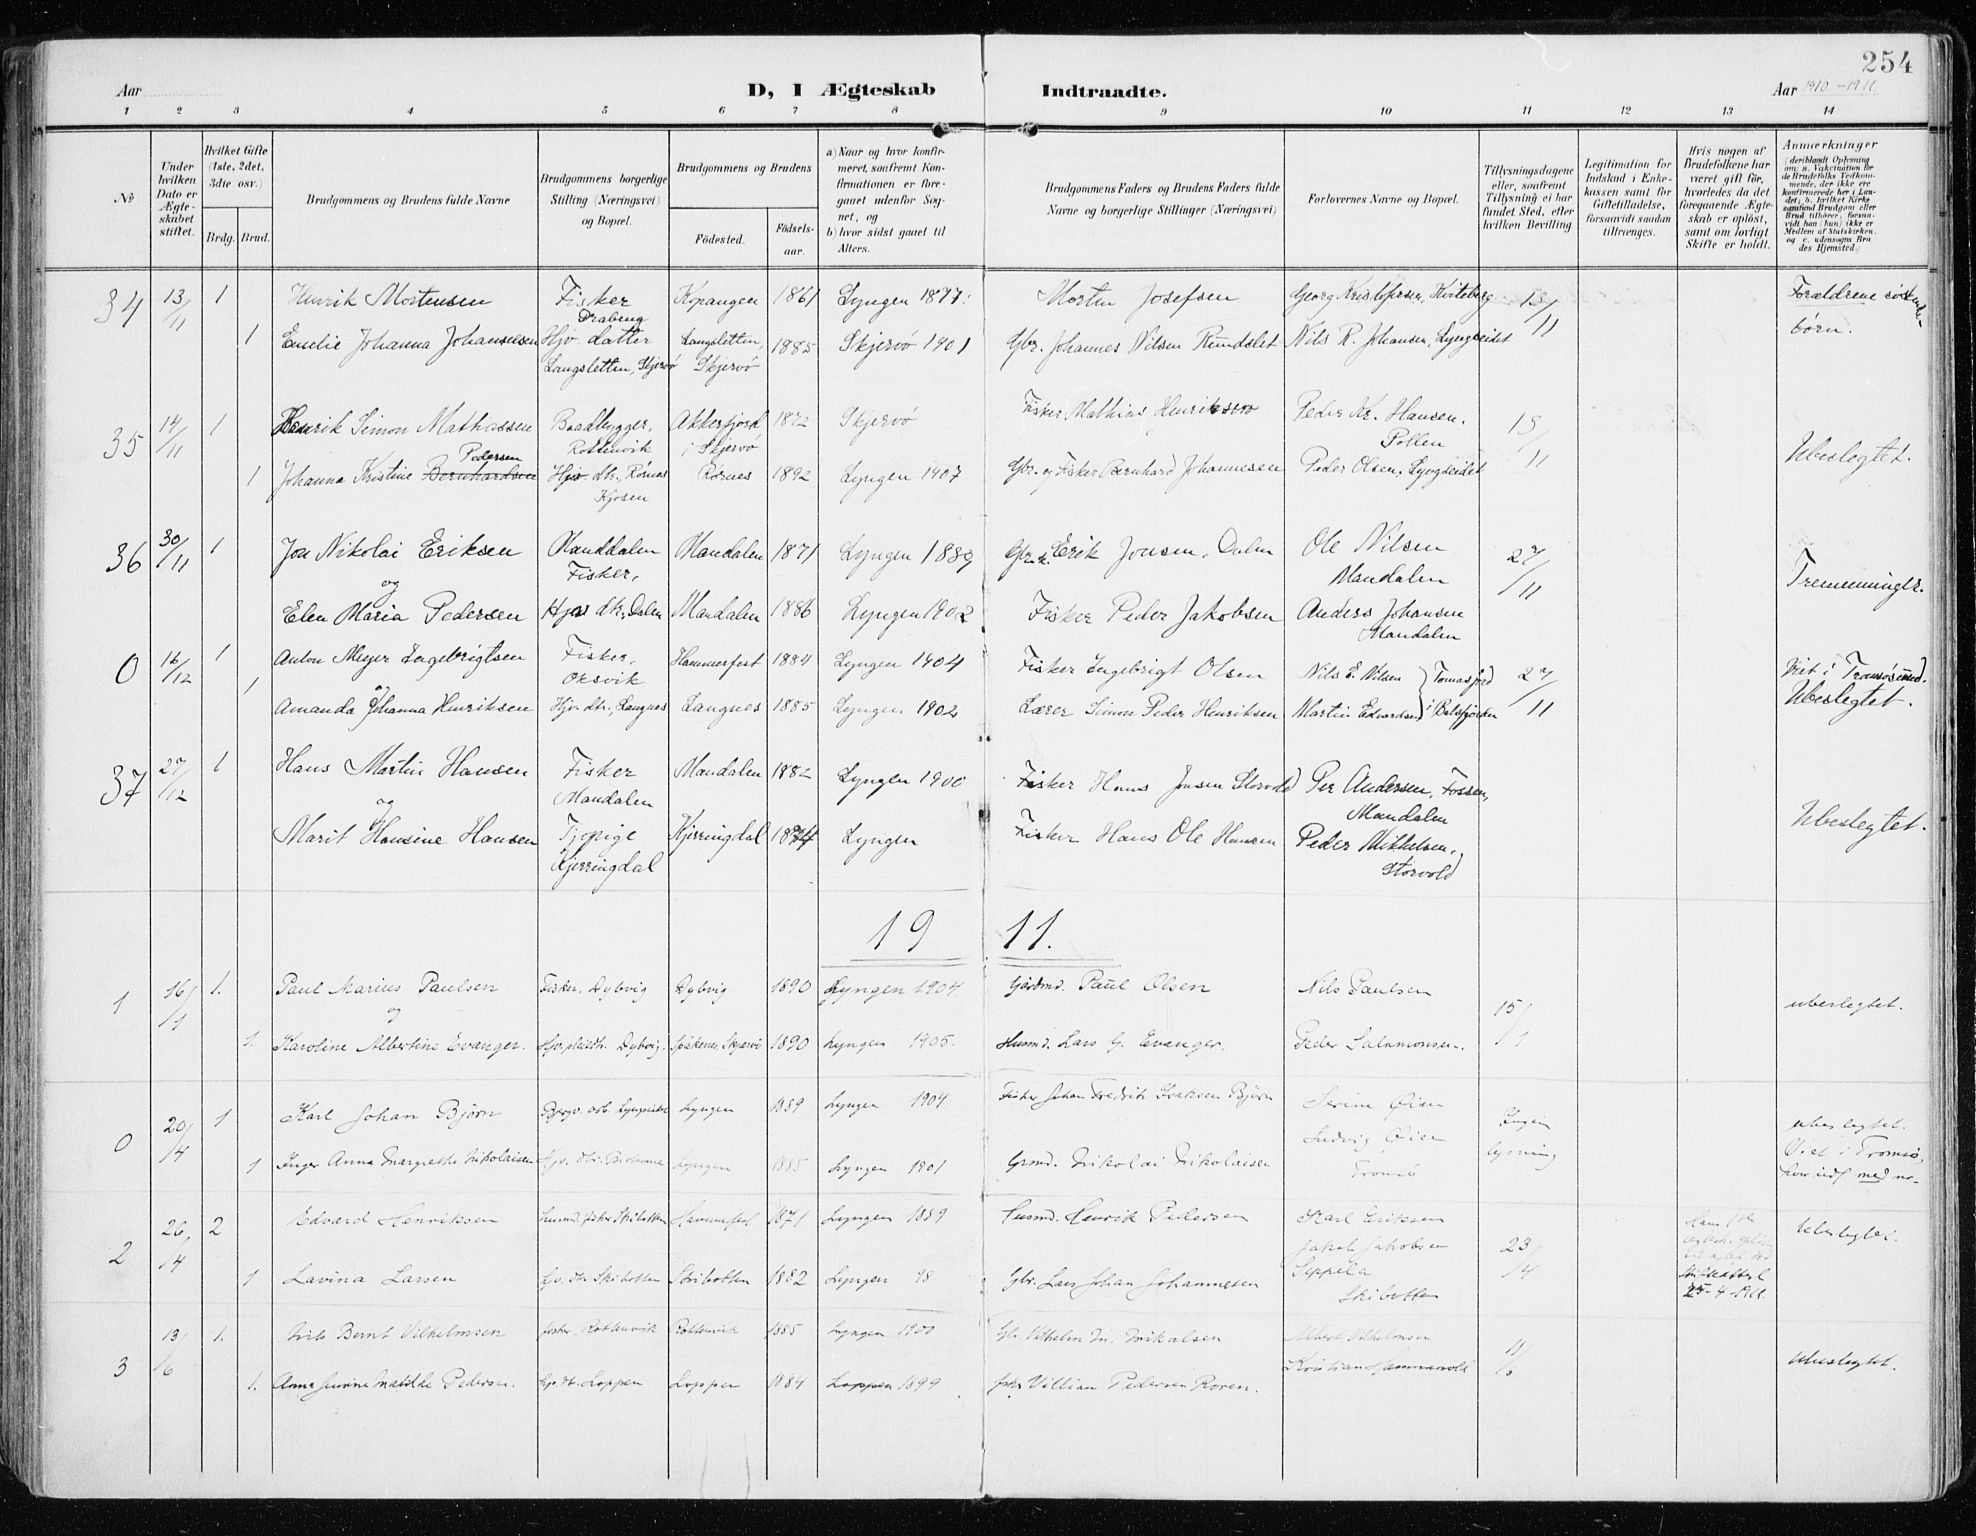 254
Aar D, I Ægteskab Indtraadte. Aar 1910-1911.
1 2 3 4 5 6 7 8 9 10 11 12 13 14
№
Under hvilken Dato er Ægteskabet stiftet.
Hvilket Gifte (1ste, 2det, 3die osv.)
Brdg. Brud.
Brudgommens og Brudens fulde Navne
Brudgommens borgerlige Stilling (Næringsvei) og Bopæl.
Brudgommens og Brudens
Fødested. Fødselsaar.
a) Naar og hvor konfirmeret, saafremt Konfirmationen er foregaaet udenfor Sognet, og
b) hvor sidst gaaet til Alters.
Brudgommens Faders og Brudens Faders fulde Navne og borgerlige Stillinger (Næringsvei)
Forlovernes Navne og Bopæl.
Tillysningsdagene eller, saafremt Tillysning ei har fundet Sted, efter hvilken Bevilling.
Legitimation for Indskud i Enkekassen samt for Giftetilladelse, forsaavidt saadan tiltrænges.
Hvis nogen af Brudefolkene har været gift før, hvorledes da det foregaaende Ægteskab er opløst, samt om lovligt Skifte er holdt.
Anmærkninger
34 13/11 1 Henrik Mortensen Fisker Drabeng Kopangen 1861 Lyngen 1877. Mortin Josefsen Georg Kristofersen, Kviteberg 13/11 Forældrene søskendebørn.
1 Emelie Johanna Johannesen Hjv. datter Langsletten, Skjervö Langsletten, Skjervö 1885 Skjervö 1901 Gbr. Johannes Nilsen Rundslet Nils R. Johansen, Lyngseidet
35 14/11 1 Henrik Simon Mathiassen Baadbygger, Rottenvik Akkerfjord i Skjervö 1872 Skjervö Fisker Mathias Henriksen Peder Kr. Hansen. Pollen 13/11 Ubeslegtet.
1 Johanna Kristine Bernhardsen Pedersen Hjv. dtr., Rørnes Kjosen Rørnes 1892 Lyngen 1907 Gbr. og Fisker Bernhard Johannesen Peder Olsen, Lyngseidet
36 30/11 1 Jon Nikolai Eriksen Manddalen Fisker, Mandalen 1871 Lyngen 1889 Gbr. Erik Jonsen, Dalen Ole Nilsen Mandalen 27/11 Tremenninger.
og
Elen Maria Pedersen Hjv. dtr., Dalen Mandalen 1886 Lyngen 1902 Fisker Peder Jakobsen Anders Johansen Mandalen
0 16/12 1 Anton Meyer Engebrigtsen Fisker, Oksvik Hammerfest 1884 Lyngen 1904 Fisker Engebrigt Olsen Nils E. Nilsen Tomasjord 27/11 Viet i Tromsösund. Ubeslegtet.
og
1 Amanda Johanna Henriksen Hjv. dtr., Langnes Langnes 1885 Lyngen 1902 Lærer Simon Peder Henriksen Martin Edvardsen i Balsfjorden
37 27/12 1 Hans Martin Hansen Fisker Mandalen Mandalen 1882 Lyngen 1900 Fisker Hans Jonsen Storvold Per Andersen, Fossen, Mandalen Ubeslegtet.
og
Marit Hansine Hansen Tjenestepige Kjerringdal Kjerringdal Lyngen Fisker Hans Ole Hansen Peder Mikkelsen, Storvold
1911.
1 16/1 1. Paul Marius Paulsen Fisker, Dybvig Dybvig 1890 Lyngen 1904. Gårdmd. Paul Olsen Nils Paulsen 15/1 ubeslegtet.
og
1. Karoline Albertine Evanger. Dybvig. Skjervö 1890 Lyngen 1905. Husmd. Lars G. Evanger. Peder Salamonsen.
0 20/4 1 Karl Johan Björn Lyngseidet Lyngen 1889 Lyngen 1904 Fisker Johan Fredrik Isaksen Björn Serine Øien Ingen lysning ubeslegtet. Viet i Tromsö,
1 Inger Anna Margrethe Nikolaisen Hjv. dtr. Lyngen 1885 Lyngen 1901 Grmd. Nikolai Nikolaisen Ludvig Øien Tromsö
2 26/4 2 Edvard Henriksen Husmd. fisker Skibotten Hammerfest 1871 Lyngen 1889 Husmd. Henrik Pedersen Karl Eriksen Jakob Jakobsen 23/4 25-4-1911. Ubeslegtet.
1 Lavina Larsen Hjv. dtr. Skibotten Skibotten 1882 Lyngen 98 Gbr. Lars Johan Johannesen Seppela Skibotten
3 13/6 1. Nils Bernt Vilhelmsen fisker, Rottenvik Rottenvik 1885 Lyngen 1900 Gbr. Vilhelm N. Nikolaisen Albert Vilhelmsen 11/6 Ubeslegtet.
1. Anna Jensine Matilde Pedersen. Hjv. dt. Loppen Loppen 1884 Loppen 1899 fisker Villian Pedersen Kristian Hammervold